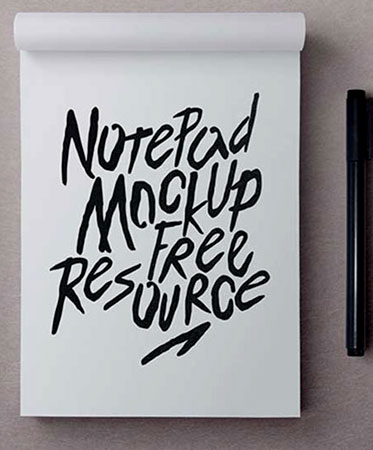 NotePad
MockUp
FREE
RESOURCE